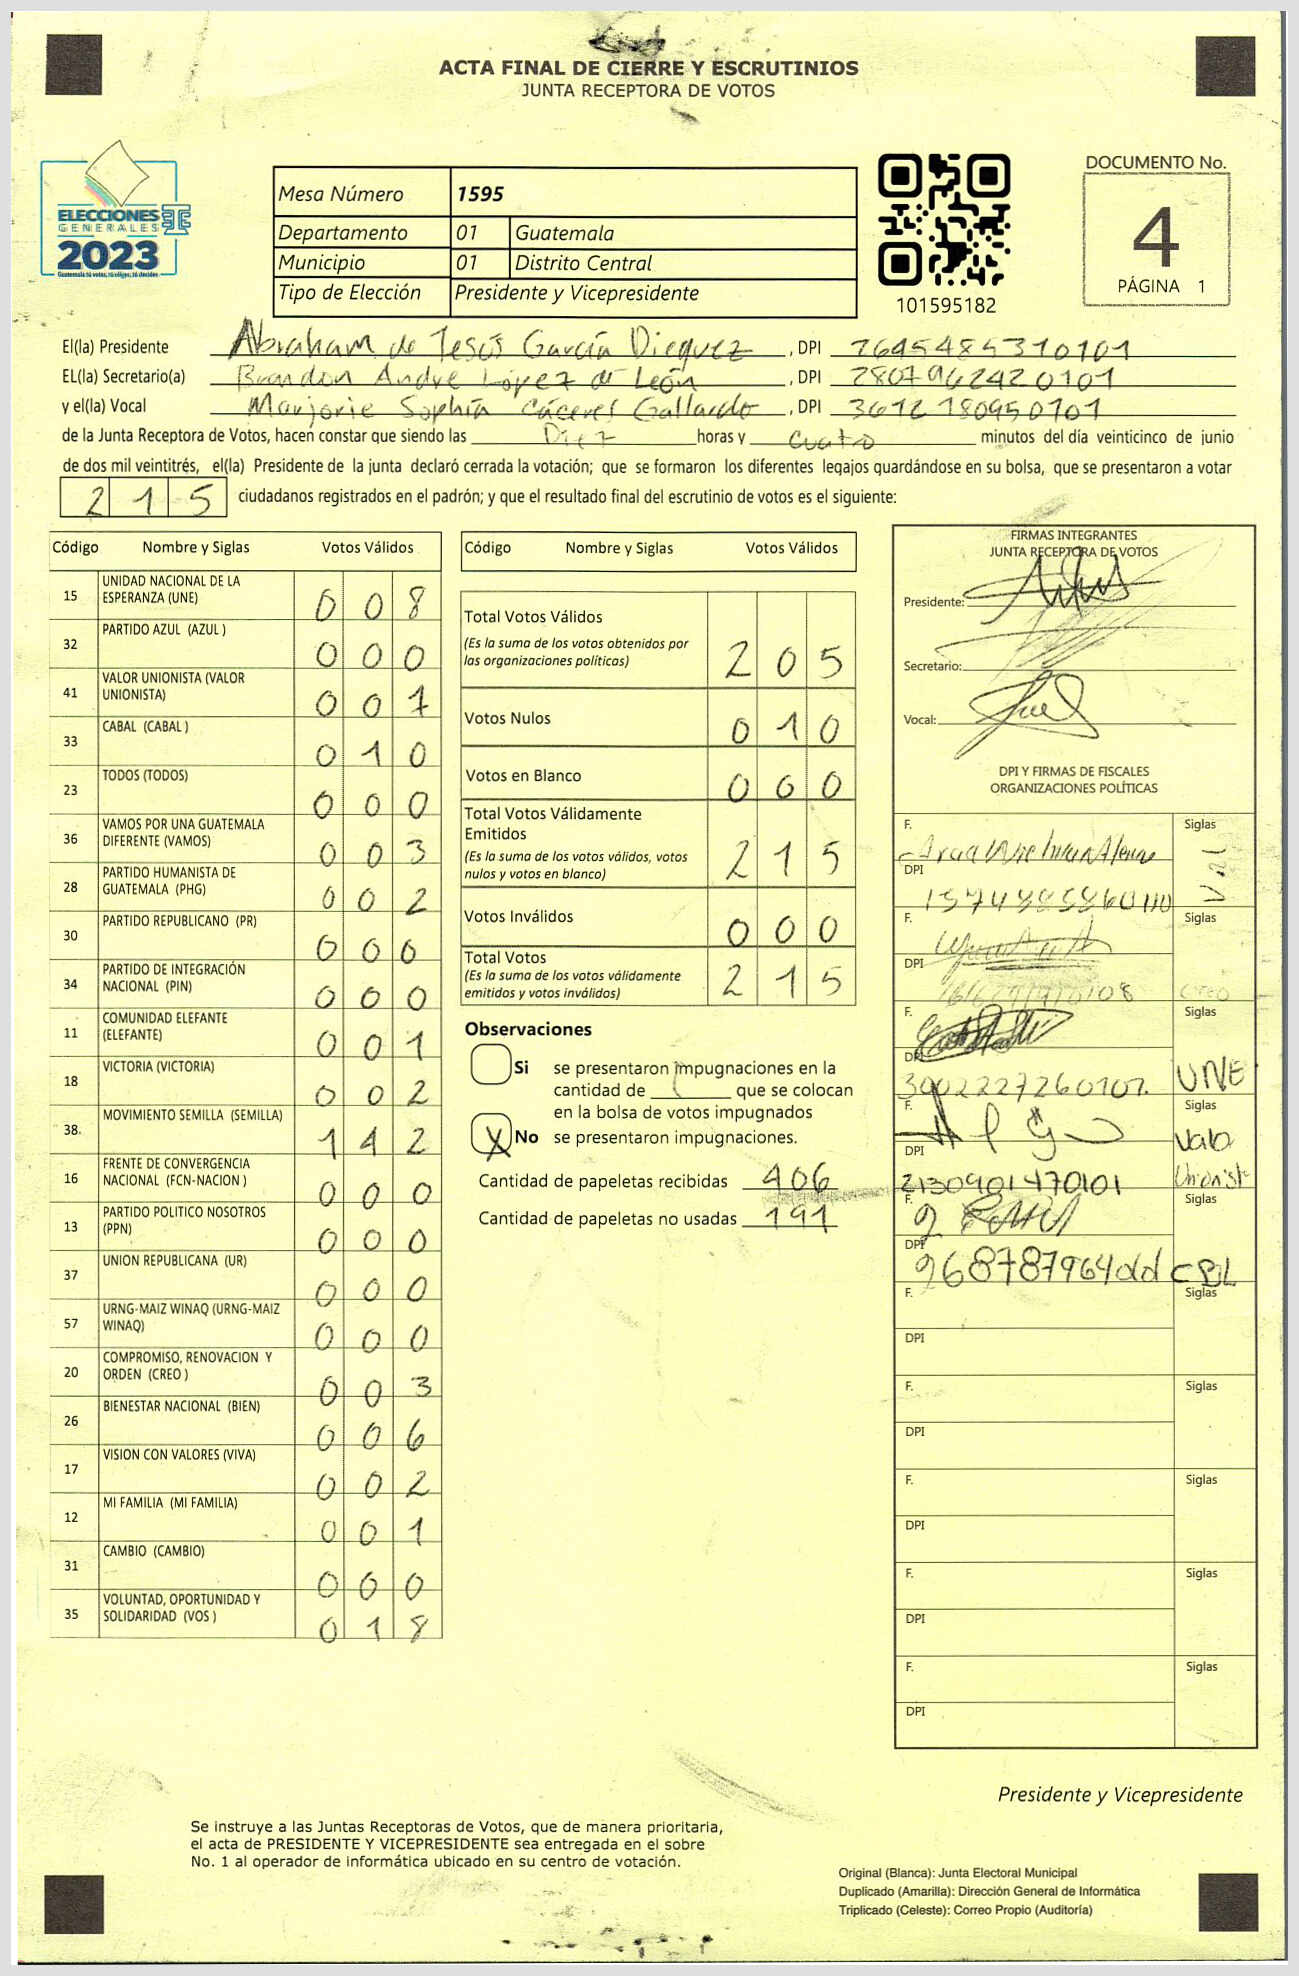 ACTA FINAL DE CIERRE Y ESCRUTINIOS
JUNTA RECEPTORA DE VOTOS
ELECCIONES
GENERALES
2023
Guatemala tú votas, tú eliges, tú decides
Mesa Número 1595
Departamento 01 Guatemala
Municipio 01 Distrito Central
Tipo de Elección Presidente y Vicepresidente
101595182
DOCUMENTO No.
4
PÁGINA 1
El(la) Presidente Abraham de Jesús García Dieguez, DPI 2645485310101
EL(la) Secretario(a) Brandon Andre López de León, DPI 2807962420101
y el(la) Vocal Marjorie Sophía Cáceres Gallardo, DPI 3612180950101
de la Junta Receptora de Votos, hacen constar que siendo las Diez horas y cuatro minutos del día veinticinco de junio
de dos mil veintitrés, el(la) Presidente de la junta declaró cerrada la votación; que se formaron los diferentes legajos quardándose en su bolsa, que se presentaron a votar
215 ciudadanos registrados en el padrón; y que el resultado final del escrutinio de votos es el siguiente:
Código Nombre y Siglas Votos Válidos
15 UNIDAD NACIONAL DE LA ESPERANZA (UNE) 008
32 PARTIDO AZUL (AZUL ) 000
41 VALOR UNIONISTA (VALOR UNIONISTA) 007
33 CABAL (CABAL ) 010
23 TODOS (TODOS) 000
36 VAMOS POR UNA GUATEMALA DIFERENTE (VAMOS) 003
28 PARTIDO HUMANISTA DE GUATEMALA (PHG) 002
30 PARTIDO REPUBLICANO (PR) 000
34 PARTIDO DE INTEGRACIÓN NACIONAL (PIN) 000
11 COMUNIDAD ELEFANTE (ELEFANTE) 001
18 VICTORIA (VICTORIA) 002
38. MOVIMIENTO SEMILLA (SEMILLA) 142
16 FRENTE DE CONVERGENCIA NACIONAL (FCN-NACION ) 000
13 PARTIDO POLITICO NOSOTROS (PPN) 000
37 UNION REPUBLICANA (UR) 000
57 URNG-MAIZ WINAQ (URNG-MAIZ WINAQ) 000
20 COMPROMISO, RENOVACION Y ORDEN (CREO ) 003
26 BIENESTAR NACIONAL (BIEN) 006
17 VISION CON VALORES (VIVA) 002
12 MI FAMILIA (MI FAMILIA) 001
31 CAMBIO (CAMBIO) 000
35 VOLUNTAD, OPORTUNIDAD Y SOLIDARIDAD (VOS ) 018
Código Nombre y Siglas Votos Válidos
Total Votos Válidos
(Es la suma de los votos obtenidos por
las organizaciones políticas) 205
Votos Nulos 010
Votos en Blanco 000
Total Votos Válidamente
Emitidos
(Es la suma de los votos válidos, votos
nulos y votos en blanco) 215
Votos Inválidos 000
Total Votos
(Es la suma de los votos válidamente
emitidos y votos inválidos) 215
Observaciones
Si se presentaron impugnaciones en la
cantidad de que se colocan
en la bolsa de votos impugnados
X No se presentaron impugnaciones.
Cantidad de papeletas recibidas 406
Cantidad de papeletas no usadas 191
FIRMAS INTEGRANTES
JUNTA RECEPTORA DE VOTOS
Presidente:
Secretario:
Vocal:
DPI Y FIRMAS DE FISCALES
ORGANIZACIONES POLÍTICAS
F. Siglas
DPI
F. Siglas
DPI CREO
F. Siglas
DPI 3002227260101. UNE
F. Siglas
DPI 2130901470101 Valor Unionista
F. Siglas
DPI CBL
F. Siglas
DPI
F. Siglas
DPI
F. Siglas
DPI
F. Siglas
DPI
F. Siglas
DPI
Presidente y Vicepresidente
Se instruye a las Juntas Receptoras de Votos, que de manera prioritaria,
el acta de PRESIDENTE Y VICEPRESIDENTE sea entregada en el sobre
No. 1 al operador de informática ubicado en su centro de votación.
Original (Blanca): Junta Electoral Municipal
Duplicado (Amarilla): Dirección General de Informática
Triplicado (Celeste): Correo Propio (Auditoría)